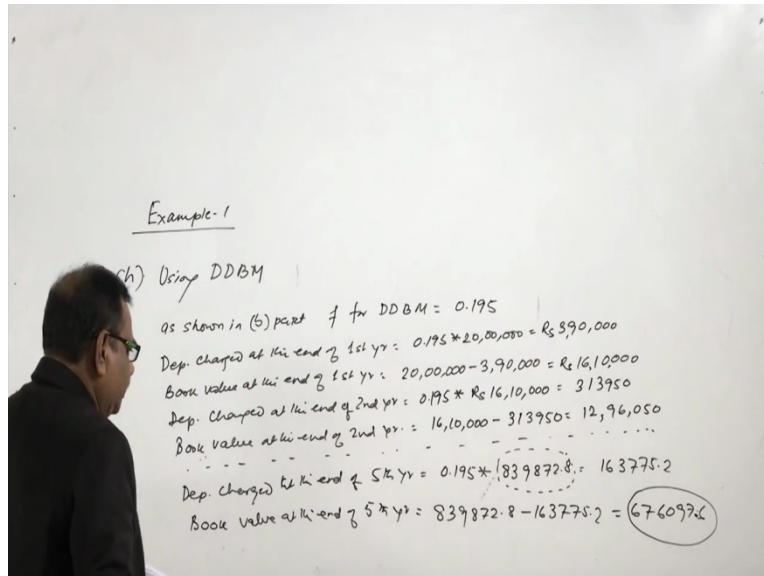 Example-1
h) Using DDBM
as shown in (b) part f for DDBM = 0.195
Dep. charged at the end of 1st yr = 0.195*20,00,000 = Rs 3,90,000
Book value at the end of 1st yr = 20,00,000-3,90,000 = Rs 16,10,000
Dep. Charged at the end of 2nd yr = 0.195 * Rs 16,10,000 = 313950
Book value at the end of 2nd yr. = 16,10,000 - 313950 = 12,96,050
Dep. charged at the end of 5th yr = 0.195* 839872.8 = 163775.2
Book value at the end of 5th yr = 839872.8-163775.2 = 676097.6